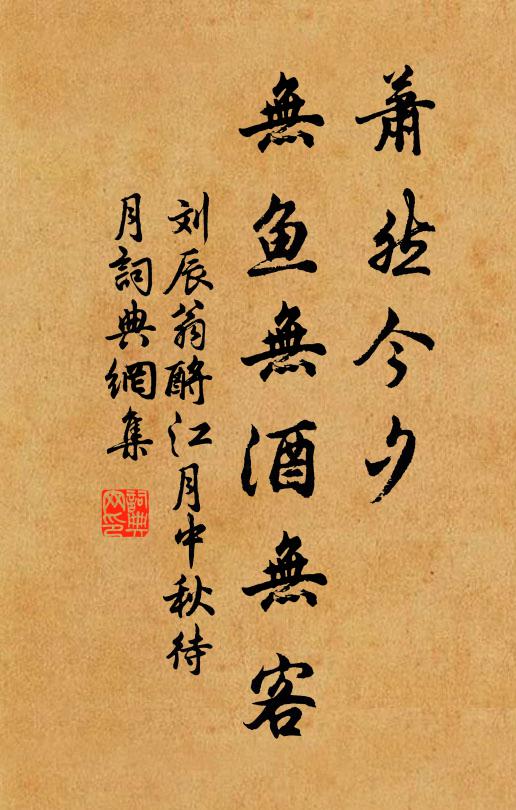 蕭然今夕
無鱼無酒無客
刘辰翁酹江月中秋待
月詞典網集
詞典
网印